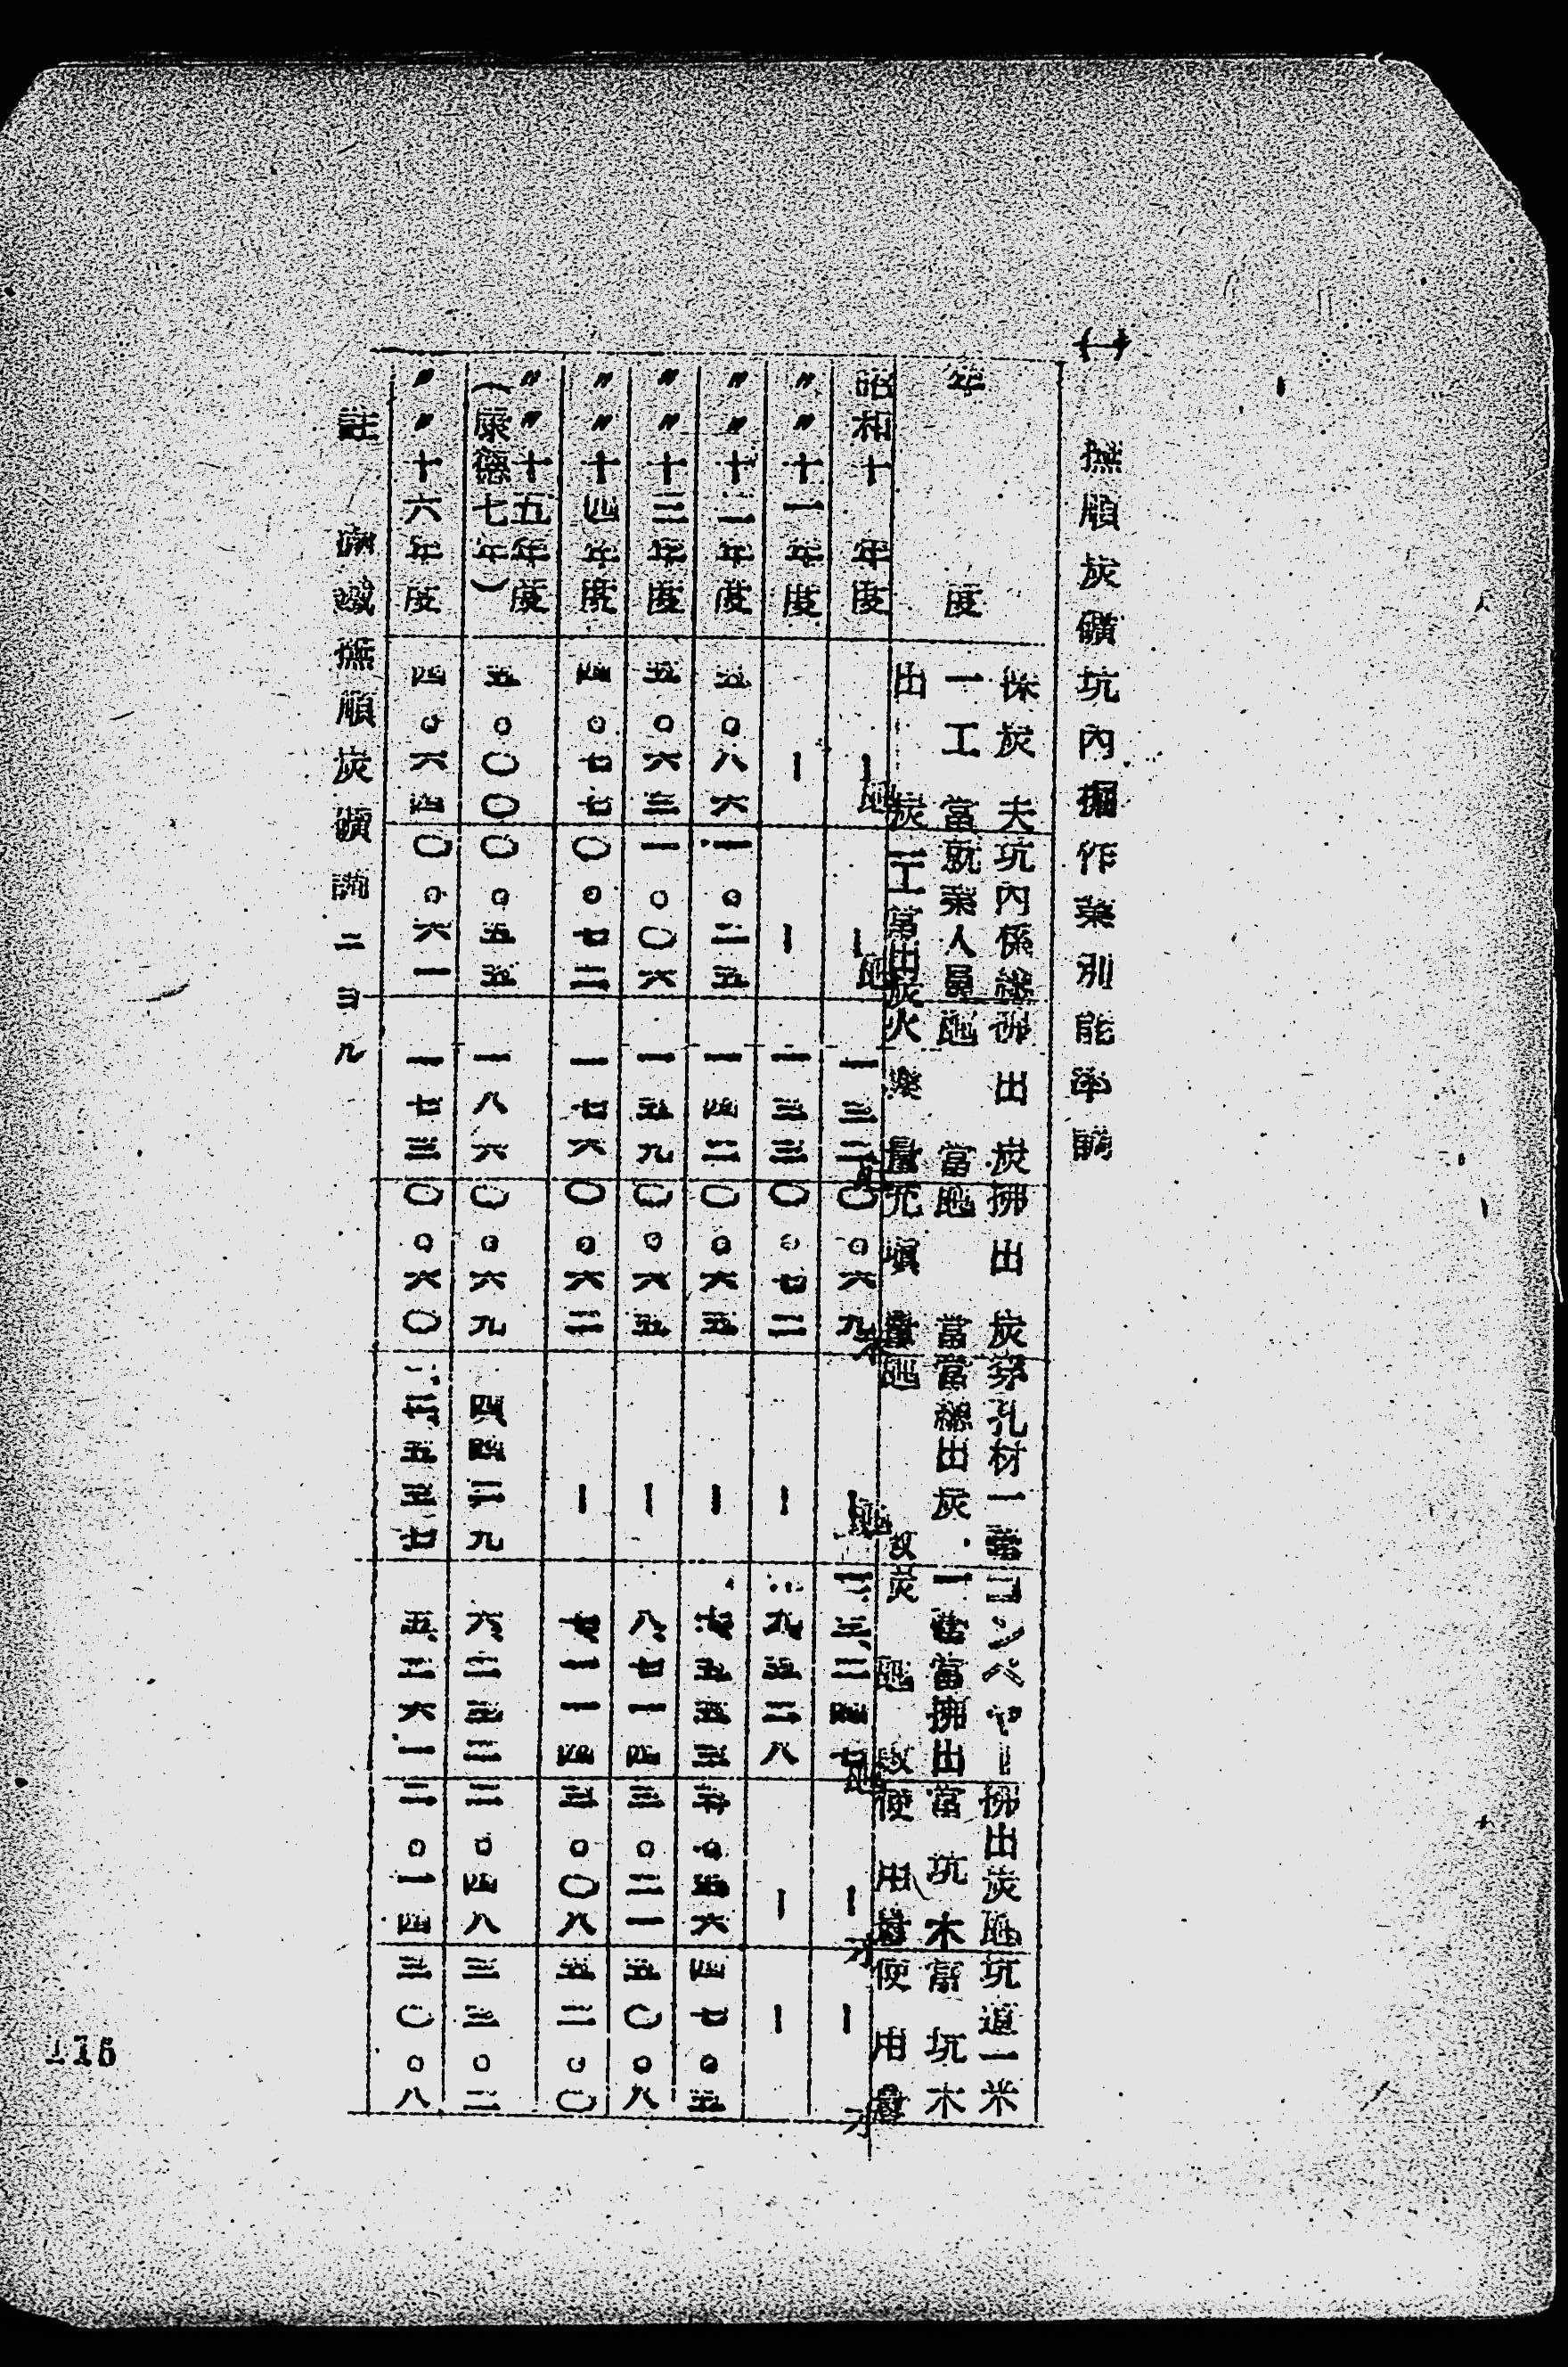 (一)
撫順炭礦坑內掘作業別能率調
年度
採炭夫一工當出炭
坑內係總就業人員一工當出炭
拂出炭瓲當火藥量
拂出炭瓲當充塡量
穿孔材一當當總出炭瓲
コンベヤー一當拂出炭瓲
拂出炭瓲當坑木使用
坑道一米當坑木使用
昭和十年度 ー瓲 ー瓲 一三二 〇。六九米 ー瓲 一三、二四七瓲 ー才 ー才
〃十一年度 ー ー 一三三 〇。七二 ー 九、五二八 ー ー
〃〃十二年度 五。八六 一。二五 一四二 〇。六五 ー 七、五五三 四七。五
〃〃十三年度 五。六三 一。〇六 一五九 〇。六五 ー 八、七一四 三。二一 五〇。八
〃〃十四年度 四。七七 〇。七二 一七六 〇。六二 ー 七、一一四 三。〇八 五二。〇
〃〃十五年度(康德七年) 五。〇〇 〇。五五 一八六 〇。六九 四四二九 六、二三二 二。四八 三三。二
〃〃十六年度 四。六四 〇。六一 一七三 〇。六〇 五五七 五、二六一 二。一四 三〇。八
註 滿鐵撫順炭礦調ニヨル
115